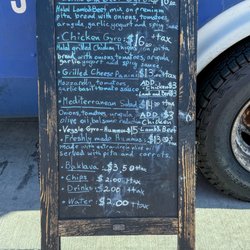 Halal Lamb&Beef mix on premium
pita bread with onions, tomatoes
arugula garlic yogurt and spicy sauce
• Chicken Gyro: $16.00 +tax
Halal grilled Chicken Thighs on pita
bread with onions, tomatoes, arugula
garlic yogurt and spicy sauce
• Grilled Cheese Panini $13 +tax
Mozzarella, tomatoes
garlic basil tomato sauce
• Mediterranean Salad $14.00 +tax
Onions, tomatoes, arugula, ADD: $3
olive oil, balsamic Chicken
• Veggie Gyro - Hummus $15 Lamb&Beef
• Freshly made Hummus: $13
Made with extra virgin olive oil
served with pita and carrots.
• Baklava: $3.50 +tax
• Chips: $2.00 +tax
• Drinks: $2.00 +tax
• Water: $2.00 +tax